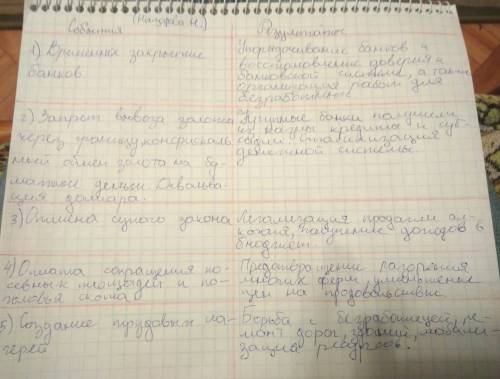 (Назарова Н.)
События
Результаты
1) Временное закрытие
банков
Упорядочивание банков и
восстановление доверия к
банковской системе, а также
организация работ для
безработных
2) Запрет вывоза золота
через границу,
ный обмен золота на бу-
мажные деньги. Девальва-
ция доллара.
Крупные банки получили
из казны кредиты и суб-
сидии. Стабилизация
денежной системы.
3) Отмена сухого закона
Легализация продажи ал-
коголя, получение доходов в
бюджет.
4) Оплата сокращения по-
севных площадей и по-
головья скота
Предотвращение разорения
многих ферм,
цен на продовольствие
5) Создание трудовых ла-
герей
Борьба с безработицей, ре-
монт дорог, зданий, мобили-
зация ресурсов.